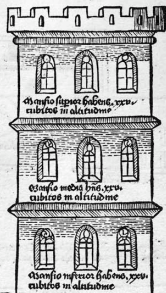 Mansio supior habens .xxv.
cubitos in altitudine
Mansio media hñs .xxv.
cubitos in altitudine
Mansio inferior habens .xxv.
cubitos in altitudine